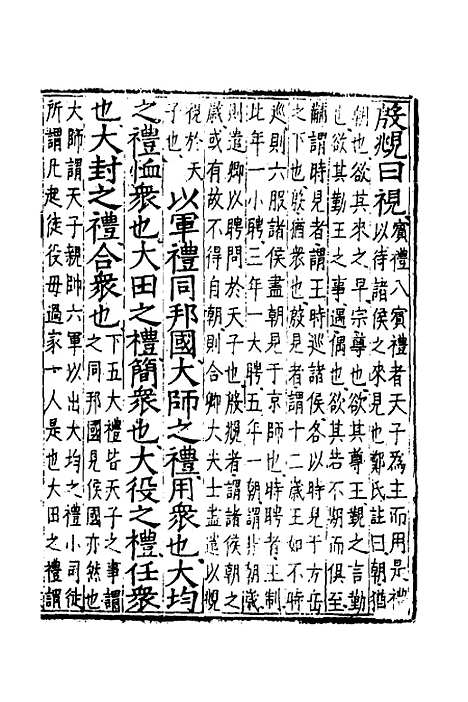 殷覜曰視
賓禮八賓禮者天子為主而用是禮
以待諸侯之來見也鄭氏註曰朝猶
朝也欲其來之早宗尊也欲其尊王覲之言勤
也欲其勤王之事遇偶也欲其若不期而俱至
爾謂時見者謂王時巡諸侯各以時見于方岳
之下也殷猶衆也殷見者謂十二歲王如不時
巡則六服諸侯盡朝見于京師也時聘者王制
此年一小聘三年一大聘五年一朝謂非朝歲
則遣卿以聘問於天子也殷覜者謂諸侯朝之
歲或有故不得自朝則合卿大夫士盡遣以覜
視於天
子也
以軍禮同邦國大師之禮用衆也大均
之禮恤衆也大田之禮簡衆也大役之禮任衆
也大封之禮合衆也
下五大禮皆天子之事謂
之同邦國見侯國亦然也
大師謂天子親帥六軍以出大均之禮小司徒
所謂凡起徒役毋過家一人是也大田之禮謂